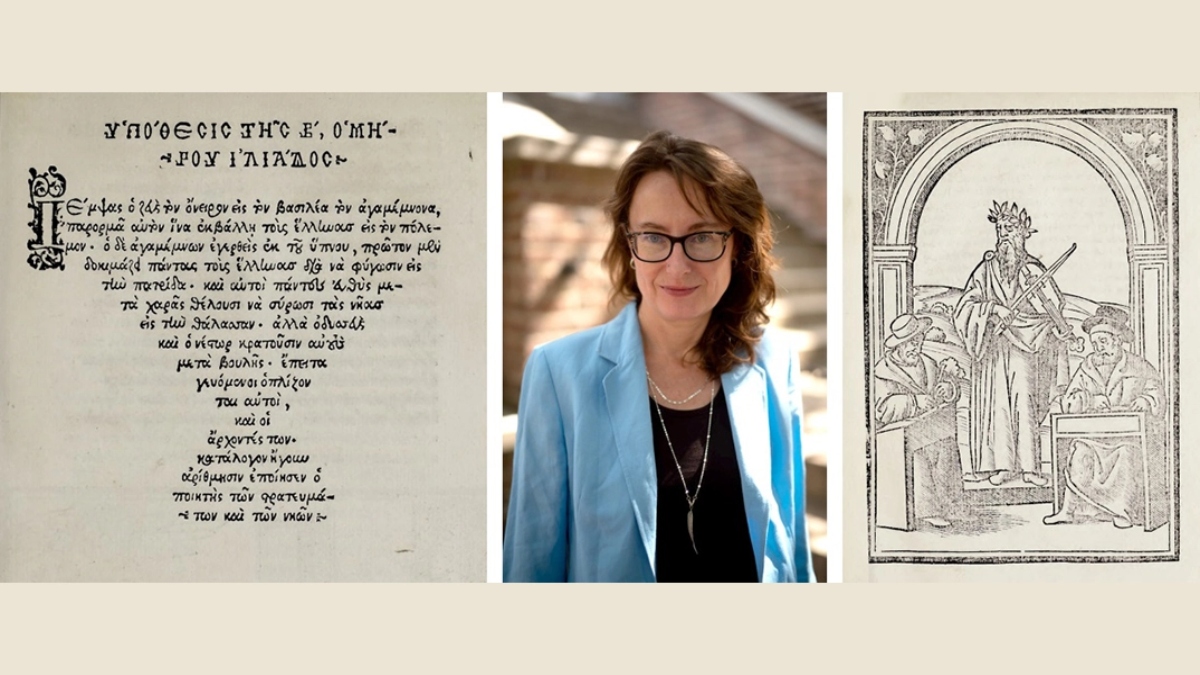 ΥΠΟ´ΘΕCΙC ΤΗ͂C Β´, ΟʽΜΗ´-
~ΡΟΥ ἸΛΙΑ´ΔΟC~
Πέμψας ὁ ζεὺς τὸν ὄνειρον εἰς τὸν βασιλέα τὸν ἀγαμέμνονα,
παρορμᾶ αὐτὸν ἵνα ἐκβάλλη τοὺς ἕλλίωας εἰς τὸν πόλε-
μον· ὁ δὲ ἀγαμέμνων ἐγερθεὶς ἐκ τοῦ ὕπνου, πρῶτον μὲν
δοκιμάζει πάντας τοὺς ἕλλίωας διὰ νὰ φύγωσιν εἰς
τὴν πατρίδα· καὶ αὐτοὶ πάντες εὐθὺς με-
τὰ χαρᾶς θέλουσι νὰ σύρωσι τὰς νῆας
εἰς τὴν θάλασσαν· ἀλλὰ ὀδυσσεὺς
καὶ ὁ νέστωρ κρατοῦσιν αὐτοὺς
μετὰ βουλῆς· ἔπειτα
γευόμενοι ὁπλίζον
ται αὐτοὶ,
καὶ οἱ
ἄρχοντές των·
κατάλογον ἤγουν
ἀρίθμησιν ἐποίησεν ὁ
ποιητὴς τῶν στρατευμά-
~ των καὶ τῶν νηῶν ~